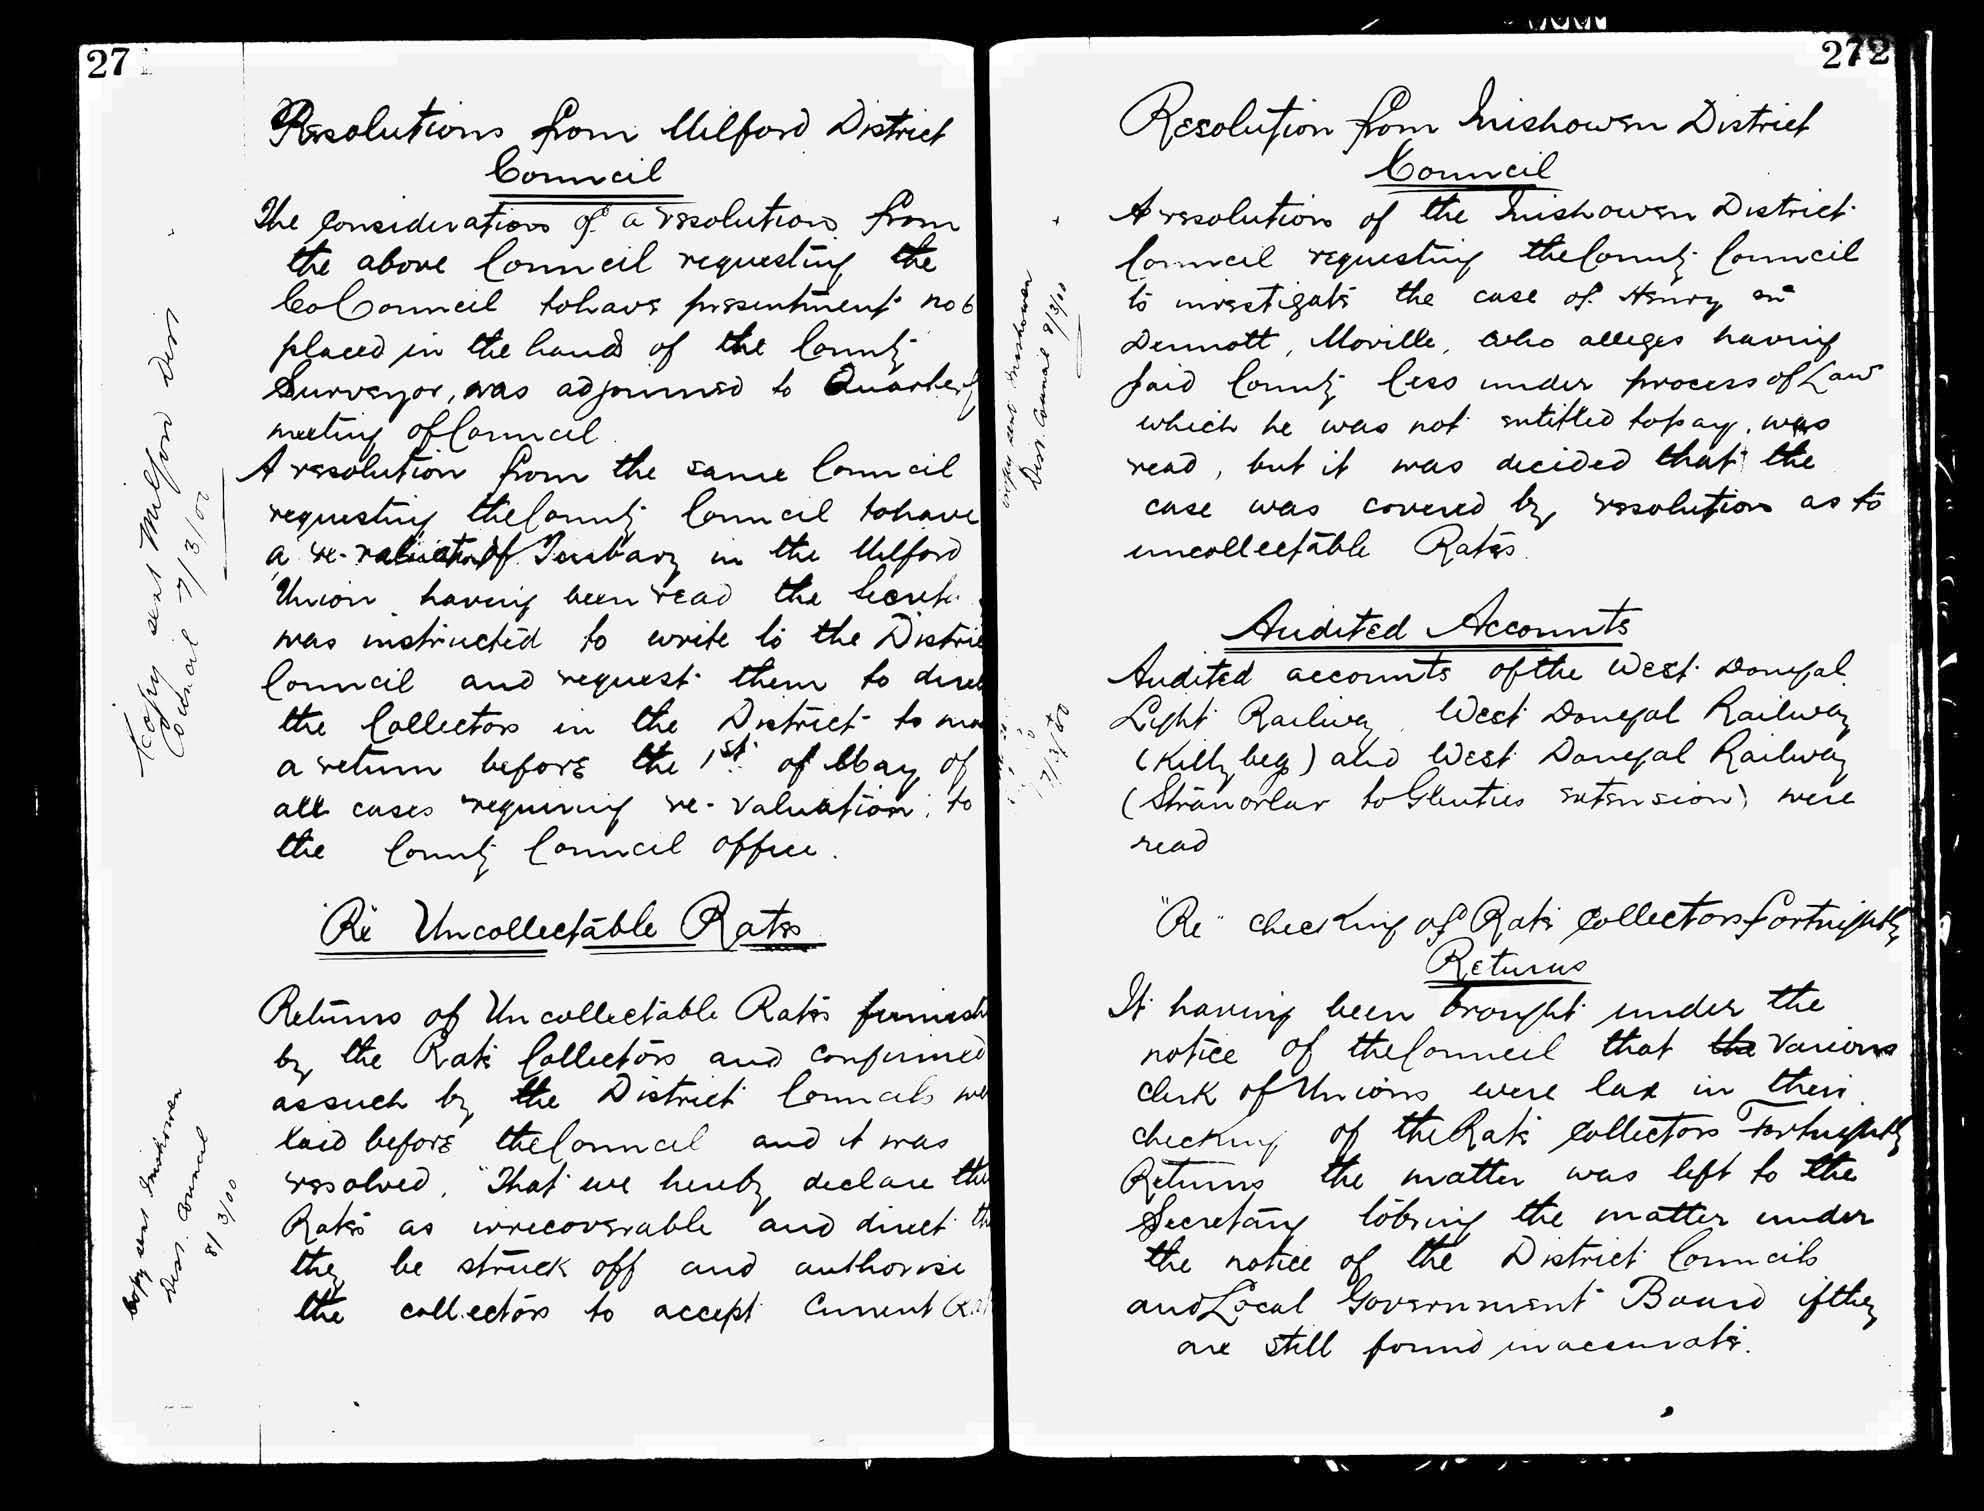 27
Resolutions from Milford District
Council
The consideration of a resolution from
the above Council requesting the
Co Council to have presentment no 6
placed in the hands of the County
Surveyor, was adjourned to Quarterly
meeting of Council
A resolution from the same Council
requesting the County Council to have
a re-valuation of in the Milford
Union having been read the Secret
was instructed to write to the Distric
Council and request them to direc
the Collectors in the District to ma
a return before the 1st of May of
all cases requiring re-valuation, to
the County Council office.
"Re" Uncollectable Rates
Returns of Uncollectable Rates furnish
by the Rate Collectors and confirmed
as such by the District Councils we
laid before the Council and it was
resolved, "That we hereby declare the
Rates as irrecoverable and direct th
they be struck off and authorise
the collectors to accept Current Rat
Copy sent Milford Dis
Council 7/3/00
Copy sent Inishowen
Dist. Council
8/3/00
272
Resolution from Inishowen District
Council
A resolution of the Inishowen District
Council requesting the County Council
to investigate the case of Henry Mc
Dermott, Moville, who alleges having
paid County Cess under process of Law
which he was not entitled to pay, was
read, but it was decided that the
case was covered by resolution as to
uncollectable Rates.
Audited Accounts
Audited accounts of the West Donegal
Light Railway, West Donegal Railway
(Killybegs) and West Donegal Railway
(Stranorlar to Glenties extension) were
read
"Re" checking of Rate Collectors fortnightly
Returns
It having been brought under the
notice of the Council that the various
clerk of Unions were lax in their
checking of the Rate Collectors Fortnightly
Returns the matter was left to the
Secretary to bring the matter under
the notice of the District Councils
and Local Government Board if they
are still found inaccurate.
Copy sent Inishowen
Dist. Council 8/3/00
7/3/00